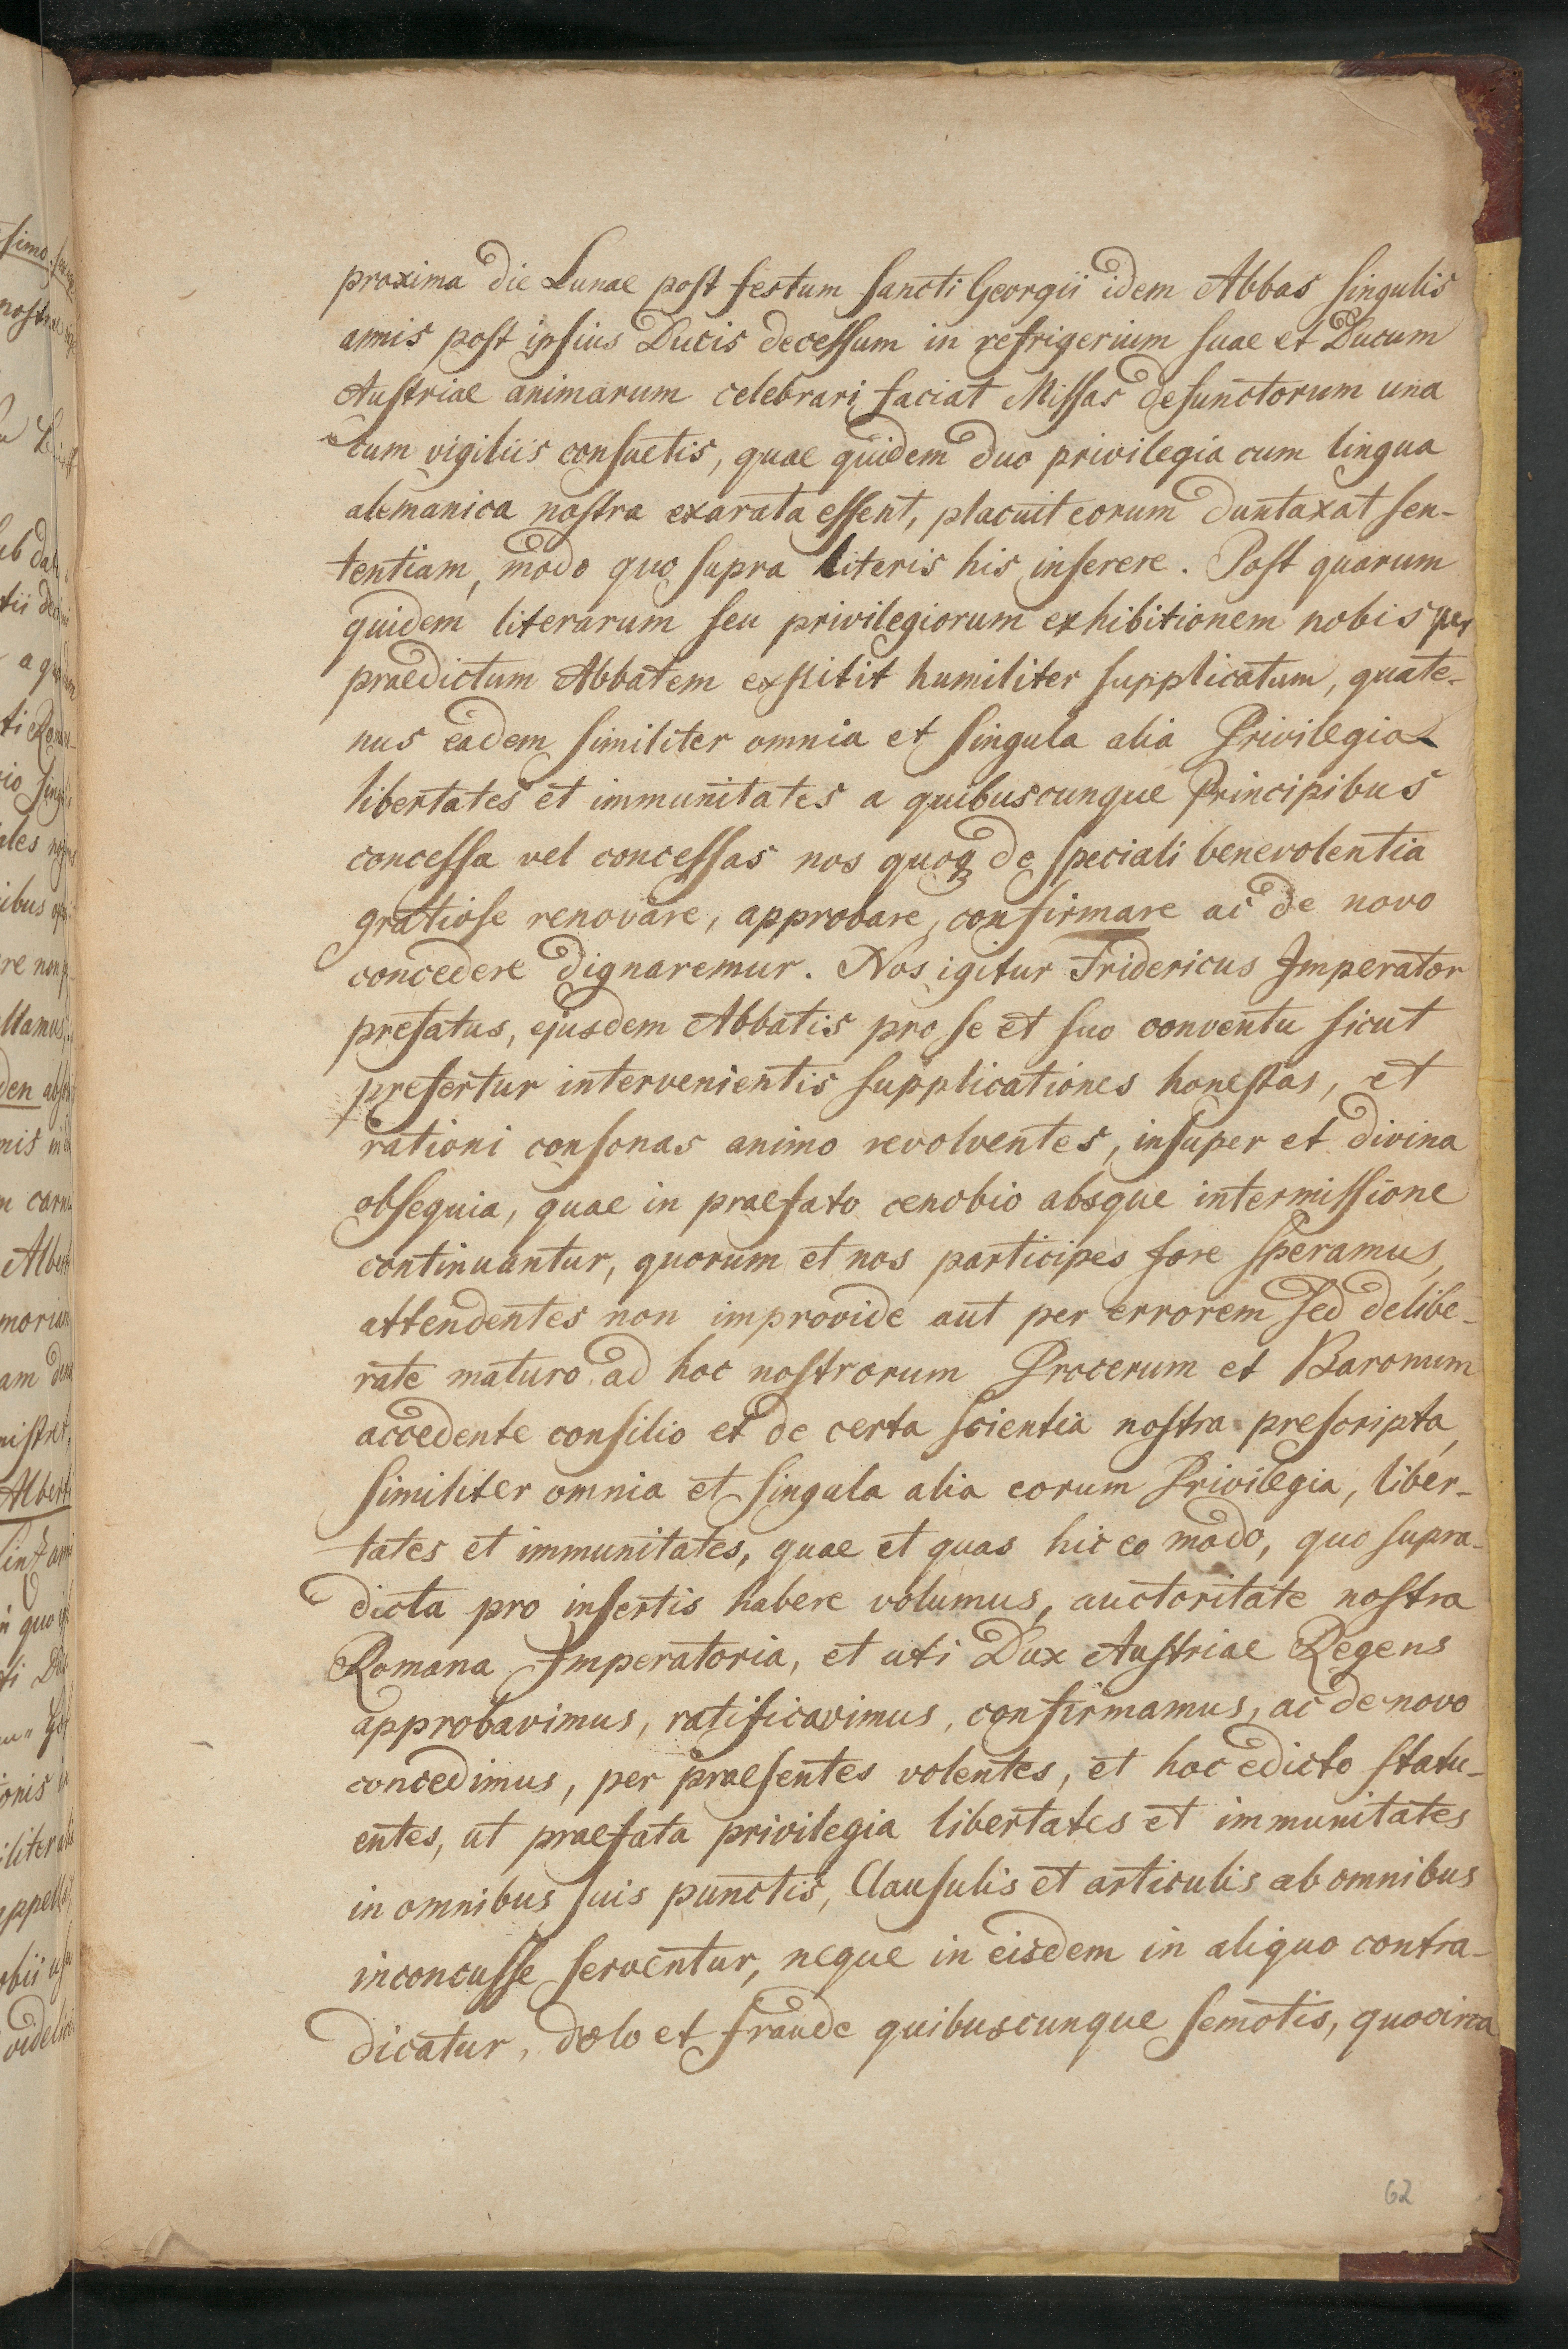 proxima die Lunae post festum Sancti Georgii idem Abbas singulis
annis post ipsius Ducis decessum in refrigerium suae et Ducum
Austriae animarum celebrari faciat Missas defunctorum una
cum vigiliis consuetis, quae quidem duo privilegia cum lingua
alemanica nostra exarata essent, placuit eorum duntaxat sen-
tentiam, modo quo supra literis his inserere. Post quarum
quidem literarum seu privilegiorum exhibitionem nobis per
praedictum Abbatem exstitit humiliter supplicatum, quate-
nus eadem similiter omnia et singula alia Privilegia
libertates et immunitates a quibuscunque Principibus
concessa vel concessas nos quoq de speciali benevolentia
gratiose renovare, approbare, confirmare ac de novo
concedere dignaremur. Nos igitur Fridericus Imperator
prefatus, ejusdem Abbatis pro se et suo conventu sicut
prefertur intervenientis supplicationes honestas, et
rationi consonas animo revolventes, insuper et divina
obsequia, quae in praefato cenobio absque intermissione
continuantur, quorum et nos participes fore speramus,
attendentes non improvide aut per errorem sed delibe-
rate maturo ad hoc nostrorum Procerum et Baronum
accedente consilio et de certa scientia nostra prescripta,
similiter omnia et singula alia eorum Privilegia, liber-
tates et immunitates, quae et quas hic eo modo, quo supra-
dicta pro insertis habere volumus, auctoritate nostra
Romana Imperatoria, et uti Dux Austriae Regens
approbavimus, ratificavimus, confirmamus, ac de novo
concedimus, per praesentes volentes, et hoc edicto statu-
entes, ut praefata privilegia libertates et immunitates
in omnibus suis punctis, Clausulis et articulis ab omnibus
inconcusse serventur, neque in eisdem in aliquo contra-
dicatur, dolo et fraude quibuscunque semotis, quocirca
62